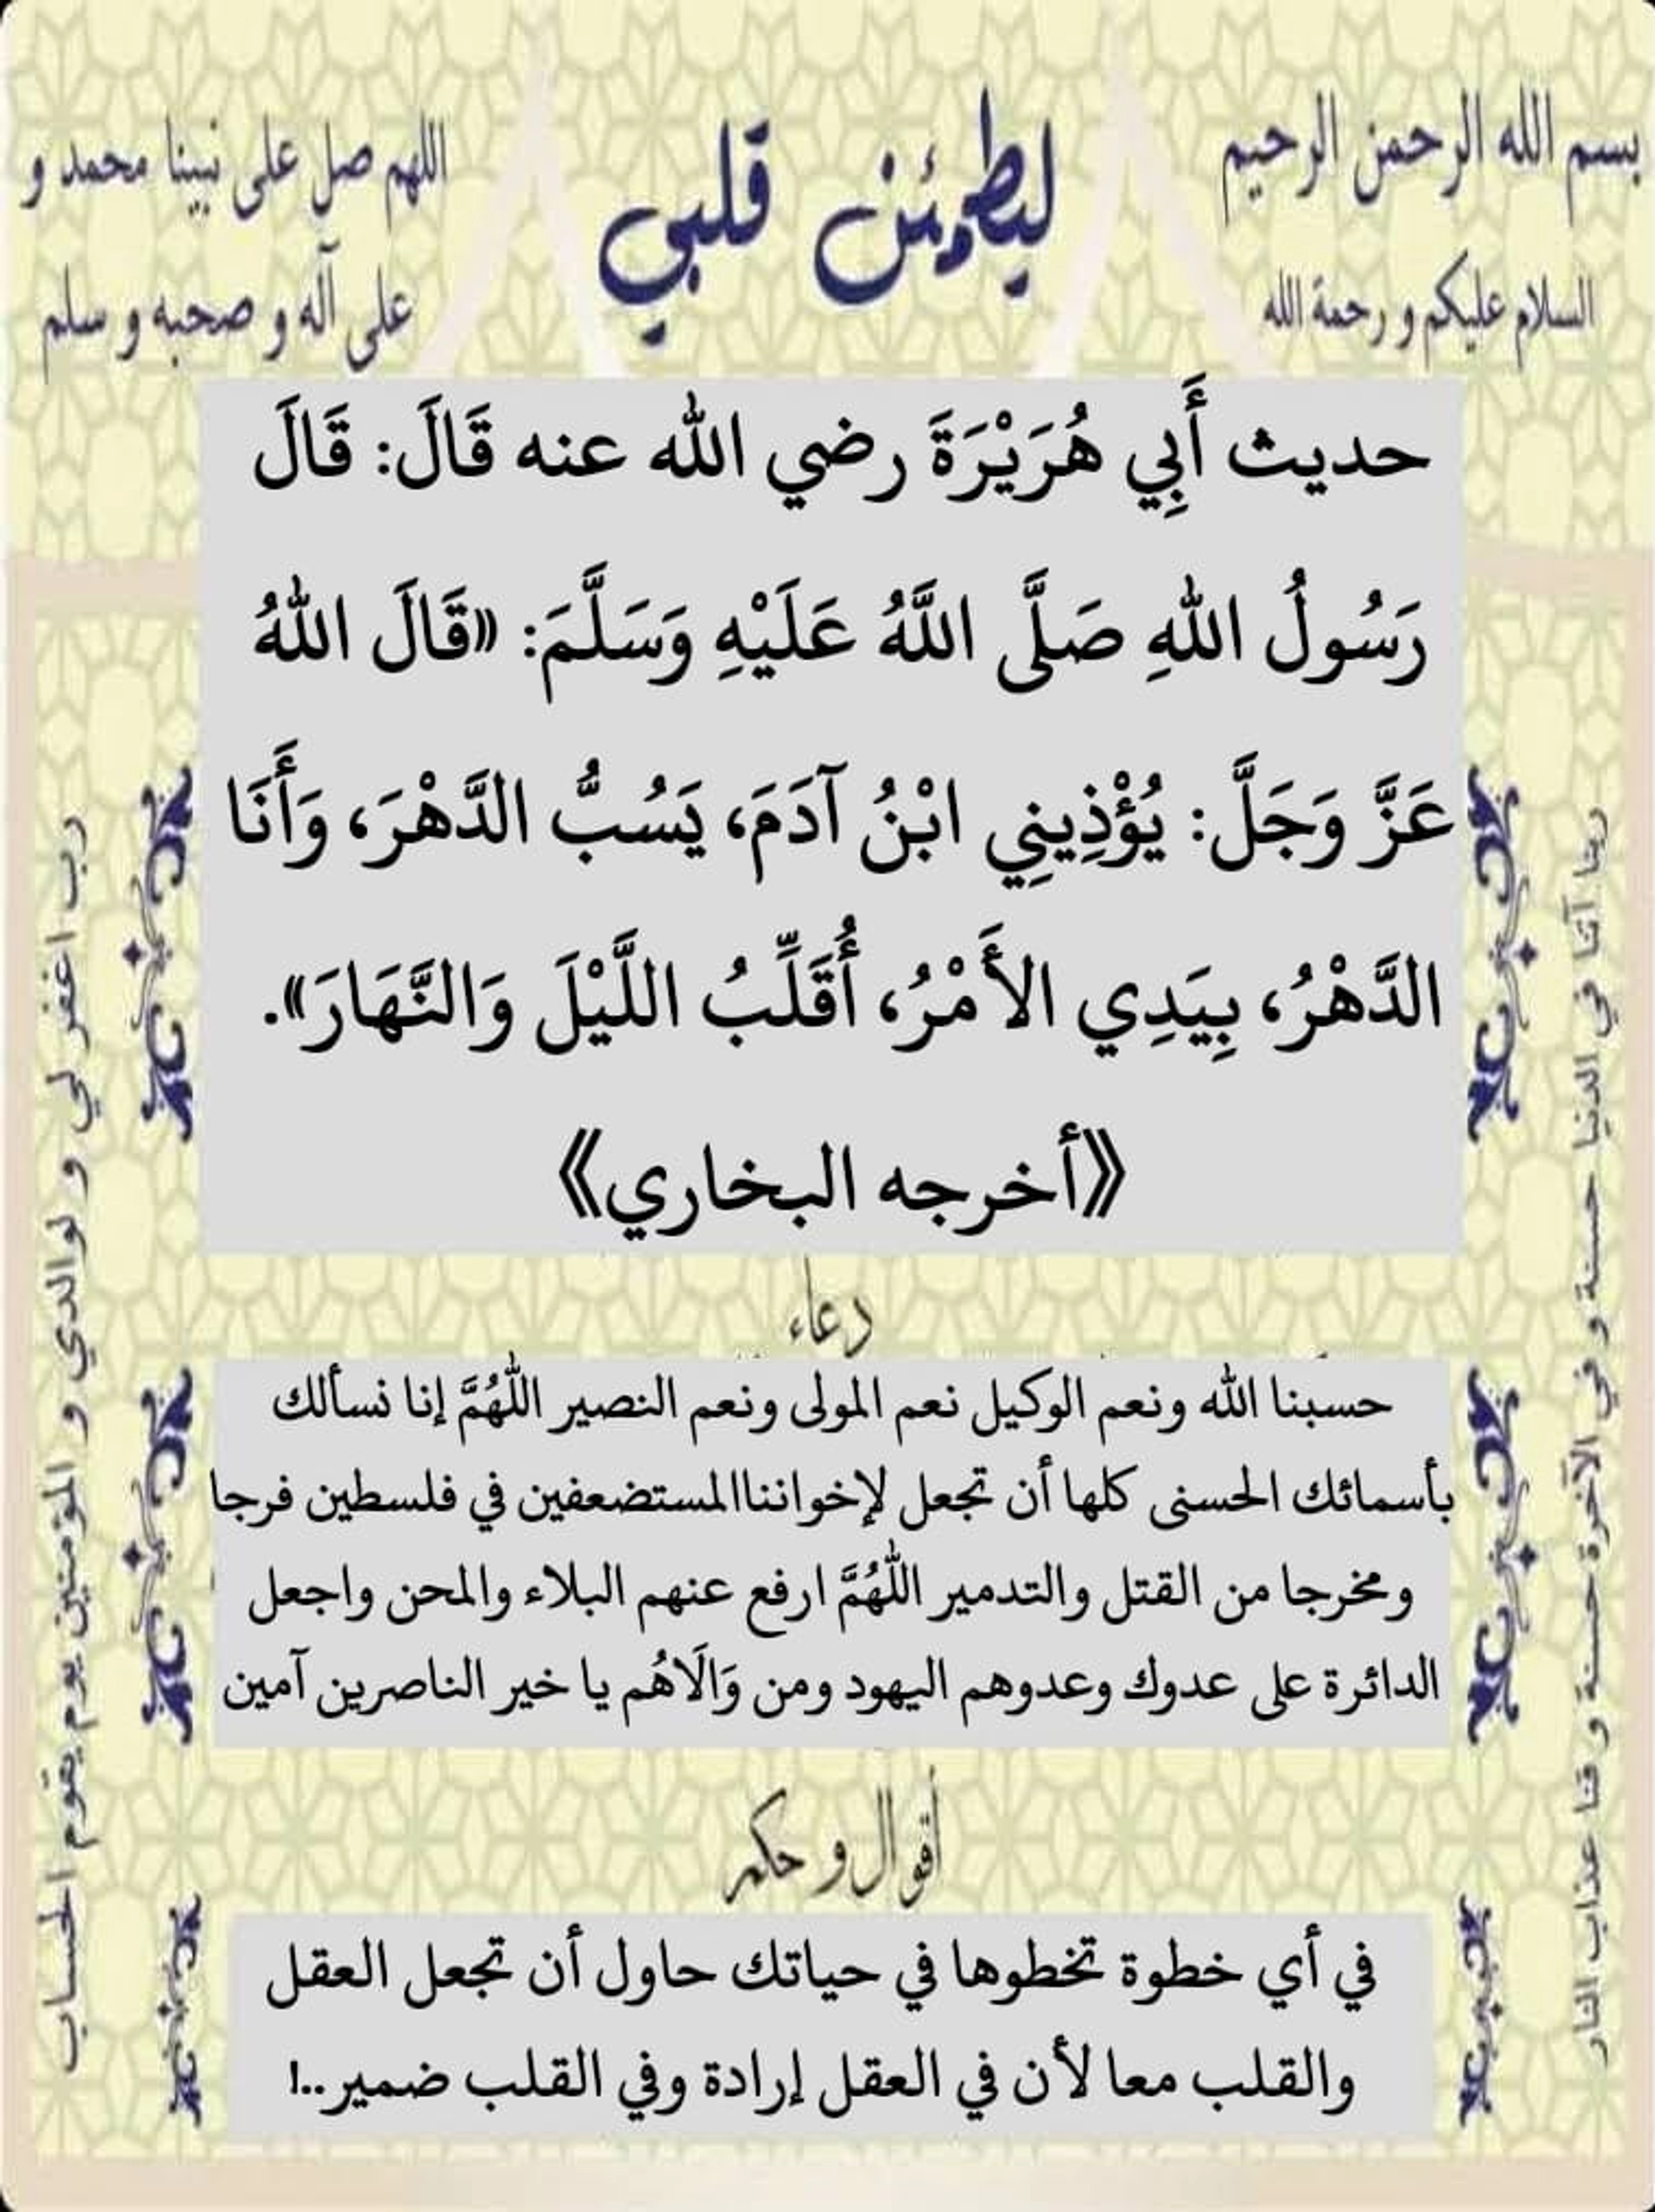 بسم الله الرحمن الرحيم
السلام عليكم و رحمة الله
ليطمئن قلبي
اللهم صل على نبينا محمد و
على آله و صحبه و سلم
حديث أَبِي هُرَيْرَةَ رضي الله عنه قَالَ: قَالَ
رَسُولُ اللهِ صَلَّى اللَّهُ عَلَيْهِ وَسَلَّمَ: «قَالَ اللهُ
عَزَّ وَجَلَّ: يُؤْذِينِي ابْنُ آدَمَ، يَسُبُّ الدَّهْرَ، وَأَنَا
الدَّهْرُ، بِيَدِي الأَمْرُ، أُقَلِّبُ اللَّيْلَ وَالنَّهَارَ».
《أخرجه البخاري》
دعاء
حسبنا الله ونعم الوكيل نعم المولى ونعم النصير اللّهُمَّ إنا نسألك
بأسمائك الحسنى كلها أن تجعل لإخوانناالمستضعفين في فلسطين فرجا
ومخرجا من القتل والتدمير اللّهُمَّ ارفع عنهم البلاء والمحن واجعل
الدائرة على عدوك وعدوهم اليهود ومن وَالَاهُم يا خير الناصرين آمين
أقوال و حكم
في أي خطوة تخطوها في حياتك حاول أن تجعل العقل
والقلب معا لأن في العقل إرادة وفي القلب ضمير..!
ربنا آتنا في الدنيا حسنة و في الآخرة حسنة و قنا عذاب النار
رب اغفر لي و لوالدي و المؤمنين يوم يقوم الحساب